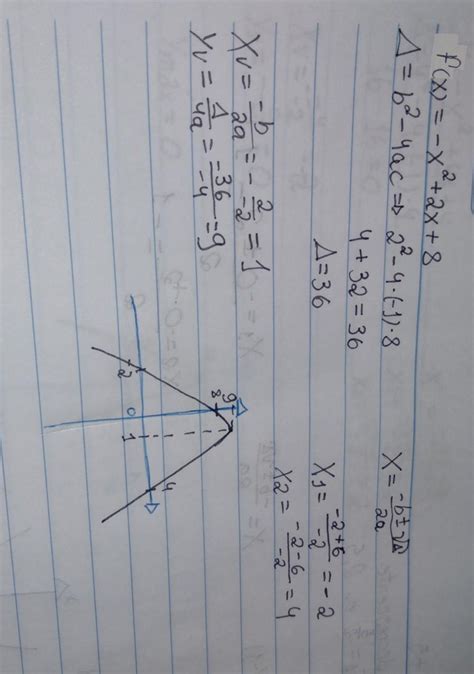 f(x) = -x² + 2x + 8
Δ = b² - 4ac ⇒ 2² - 4·(-1)·8
4 + 32 = 36
Δ = 36
X = -b ± √Δ / 2a
X1 = -2+6 / -2 = -2
X2 = -2-6 / -2 = 4
Xv = -b / 2a = - 2 / -2 = 1
Yv = Δ / 4a = -36 / -4 = 9
9
8
-2
0
1
4